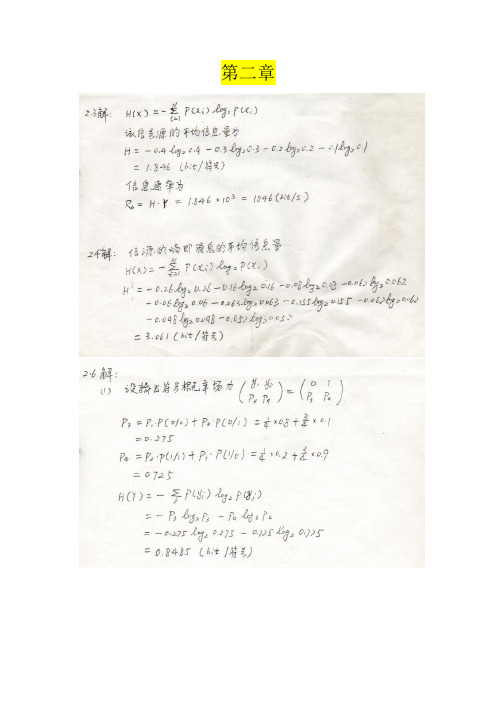 第二章
2.3解: H(X) = -∑_{i=1}^{N} P(xi) log₂ P(xi)
该信息源的平均信息量为
H = -0.4 log₂ 0.4 - 0.3 log₂ 0.3 - 0.2 log₂ 0.2 - 0.1 log₂ 0.1
= 1.846 (bit/符号)
信息速率为
R_b = H·r = 1.846×10³ = 1846 (bit/s)
2.4解: 信源的熵即消息的平均信息量
H(X) = -∑_{i=1}^{N} P(xi) log₂ P(xi)
H = -0.26 log₂ 0.26 - 0.16 log₂ 0.16 - 0.08 log₂ 0.08 - 0.062 log₂ 0.062
-0.06 log₂ 0.06 - 0.063 log₂ 0.063 - 0.155 log₂ 0.155 - 0.062 log₂ 0.062
-0.098 log₂ 0.098 - 0.052 log₂ 0.052
= 3.061 (bit/符号)
2.6解:
(1) 设输出符号概率场为 (y₁ y₂ / P₃ P₄) = (0 1 / P₃ P₄)
P₃ = P₁·P(0/0) + P₂·P(0/1) = 1/4 × 0.8 + 3/4 × 0.1
= 0.275
P₄ = P₂·P(1/1) + P₁·P(1/0) = 1/4 × 0.2 + 3/4 × 0.9
= 0.725
H(Y) = -∑_j P(yj) log₂ P(yj)
= -P₃ log₂ P₃ - P₄ log₂ P₄
= -0.275 log₂ 0.275 - 0.725 log₂ 0.725
= 0.8485 (bit/符号)